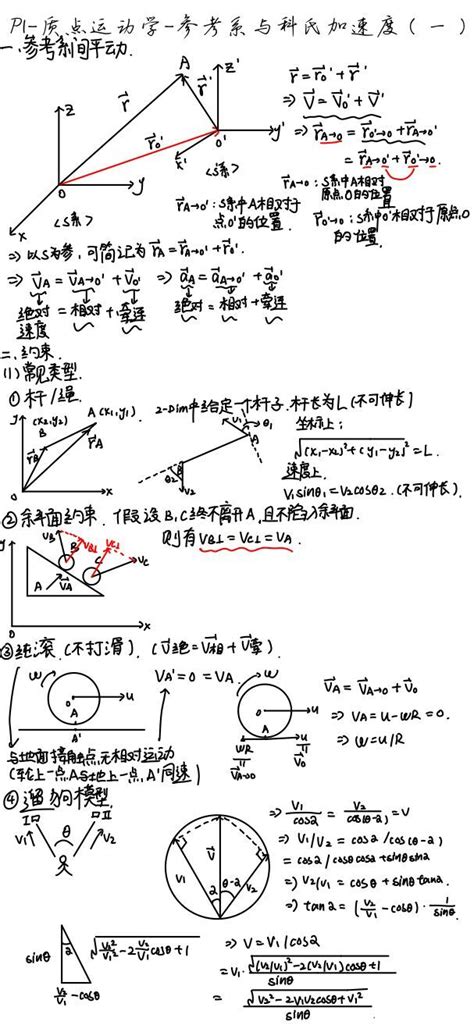 P1-质点运动学-参考系与科氏加速度(一)
一.参考系间平动.
A z'
z r⃗ r⃗' r⃗=r⃗₀'+r⃗'
⇒ V⃗=V⃗₀'+V⃗'
r⃗₀' O' y' ⇒ r⃗A→O=r⃗O'→O+r⃗A→O'
x' =r⃗A→O'+r⃗O'→O.
O y <S'系> r⃗A→O:S系中A相对原点O的位置
x <S系> r⃗A→O':S系中A相对于点O'的位置. r⃗O'→O:S系中O'相对于原点O的位置.
⇒ 以S为参,可简记为 r⃗A=r⃗A→O'+r⃗O'.
⇒ V⃗A=V⃗A→O'+V⃗O' ⇒ a⃗A=a⃗A→O'+a⃗O'
绝对速度=相对+牵连 绝对=相对+牵连
二.约束.
(1)常见类型.
①杆/绳.
y (x₂,y₂) B A(x₁,y₁) r⃗B r⃗A O x
2-Dim中给定一个杆子.杆长为L(不可伸长)
V₁ θ₁ A B θ₂ V₂
坐标上:
√(x₁-x₂)²+(y₁-y₂)²=L.
速度上.
V₁sinθ₁=V₂cosθ₂.(不可伸长).
②斜面约束.假设B,C终不离开A,且不陷入斜面.
则有VB⊥=VC⊥=VA.
y VB B VB⊥ VC⊥ C VC A V⃗A
O x
③纯滚.(不打滑).(V⃗绝=V⃗相+V⃗牵).
ω O u A A' VA'=0=VA. ω O u A ωR V⃗A→O u V⃗O
V⃗A=V⃗A→O+V⃗O
⇒ VA=u-ωR=0.
⇒ ω=u/R
与地面接触点无相对运动
(轮上一点A与地上一点A'同速)
④遛狗模型.
V₁ θ V₂
V₁ V⃗ V₂ α θ-α
⇒ V₁/cosα=V₂/cos(θ-α)=V
⇒ V₁/V₂=cosα/cos(θ-α)
=cosα/cosθcosα+sinθsinα
⇒ V₂/V₁=cosθ+sinθtanα.
⇒ tanα=(V₂/V₁-cosθ)·1/sinθ.
sinθ α √V₂²/V₁²-2V₂/V₁cosθ+1
V₂/V₁-cosθ
⇒ V=V₁/cosα
=V₁·√(V₂/V₁)²-2(V₂/V₁)cosθ+1/sinθ
=√V₂²-2V₁V₂cosθ+V₁²/sinθ